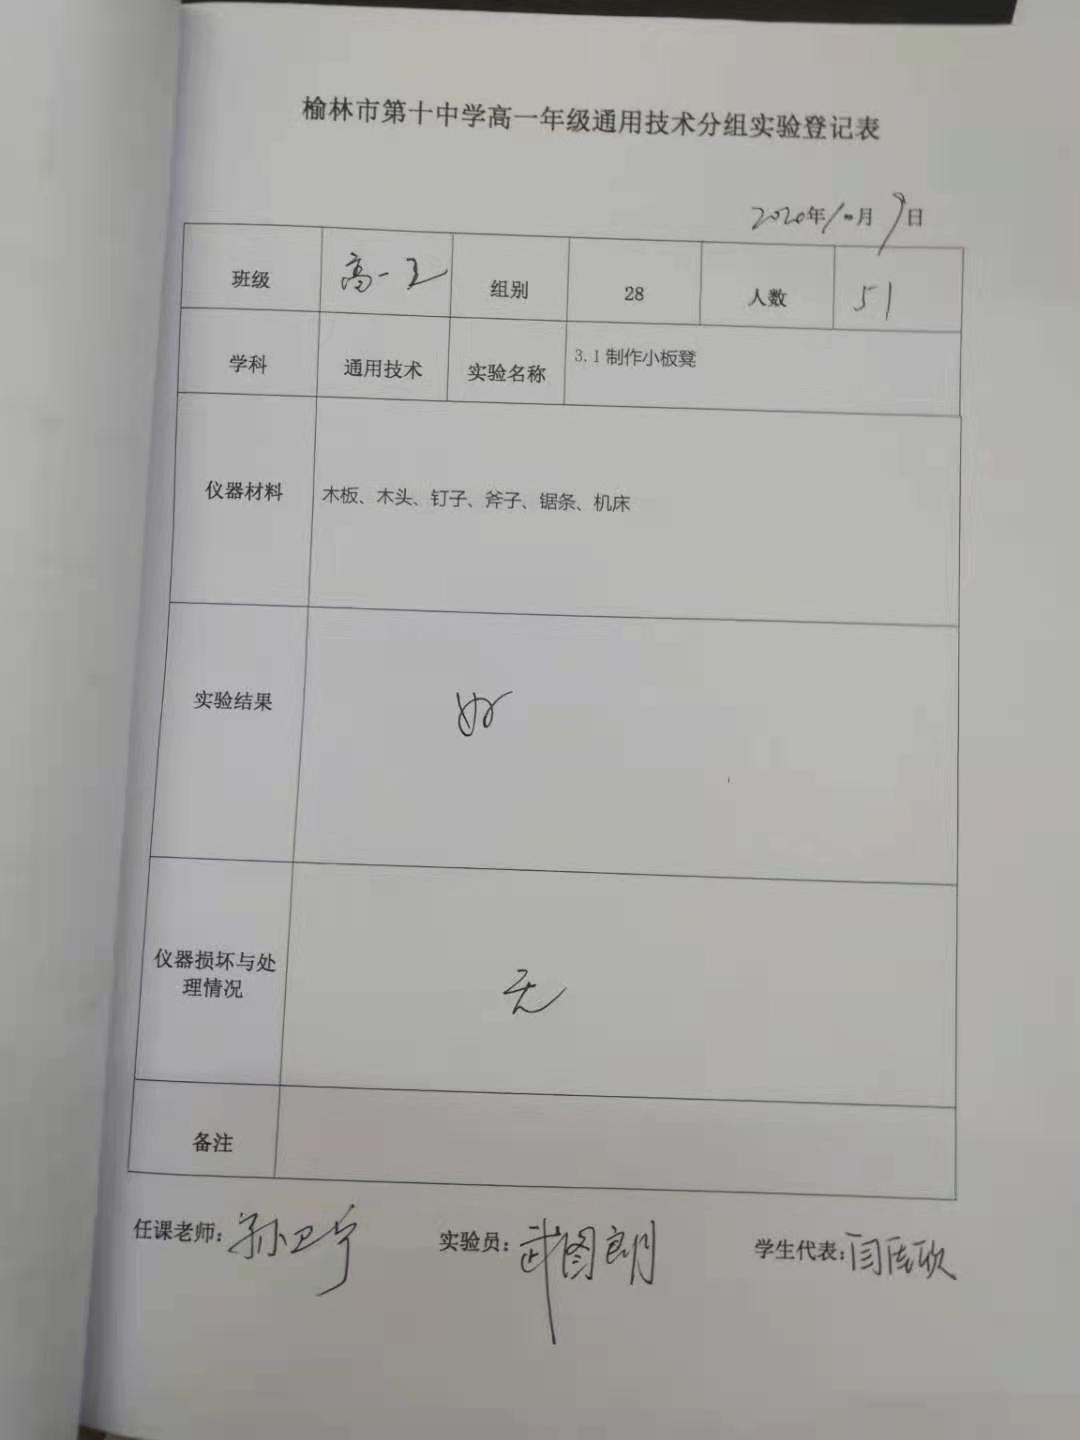 榆林市第十中学高一年级通用技术分组实验登记表
2020年10月9日
班级 高一 组别 28 人数 51
学科 通用技术 实验名称 3.1制作小板凳
仪器材料 木板、木头、钉子、斧子、锯条、机床
实验结果 好
仪器损坏与处
理情况 无
备注
任课老师:孙卫宁 实验员:武图朗 学生代表:闫